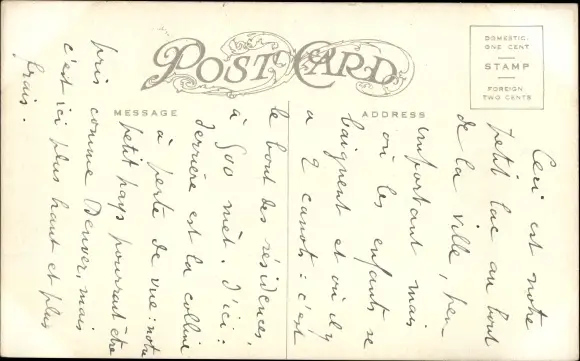 POST CARD
DOMESTIC.
ONE CENT
STAMP
FOREIGN
TWO CENTS
MESSAGE
ADDRESS
Ceci est notre
petit lac au bord
de la ville, peu
important mais
où les enfants se
baignent et où il y
a 2 canots : c'est
le bout des résidences,
à 500 mèt. d'ici :
derrière est la colline
à perte de vue : notre
petit pays pourrait être
pris comme Denver, mais
c'est ici plus haut et plus
frais.